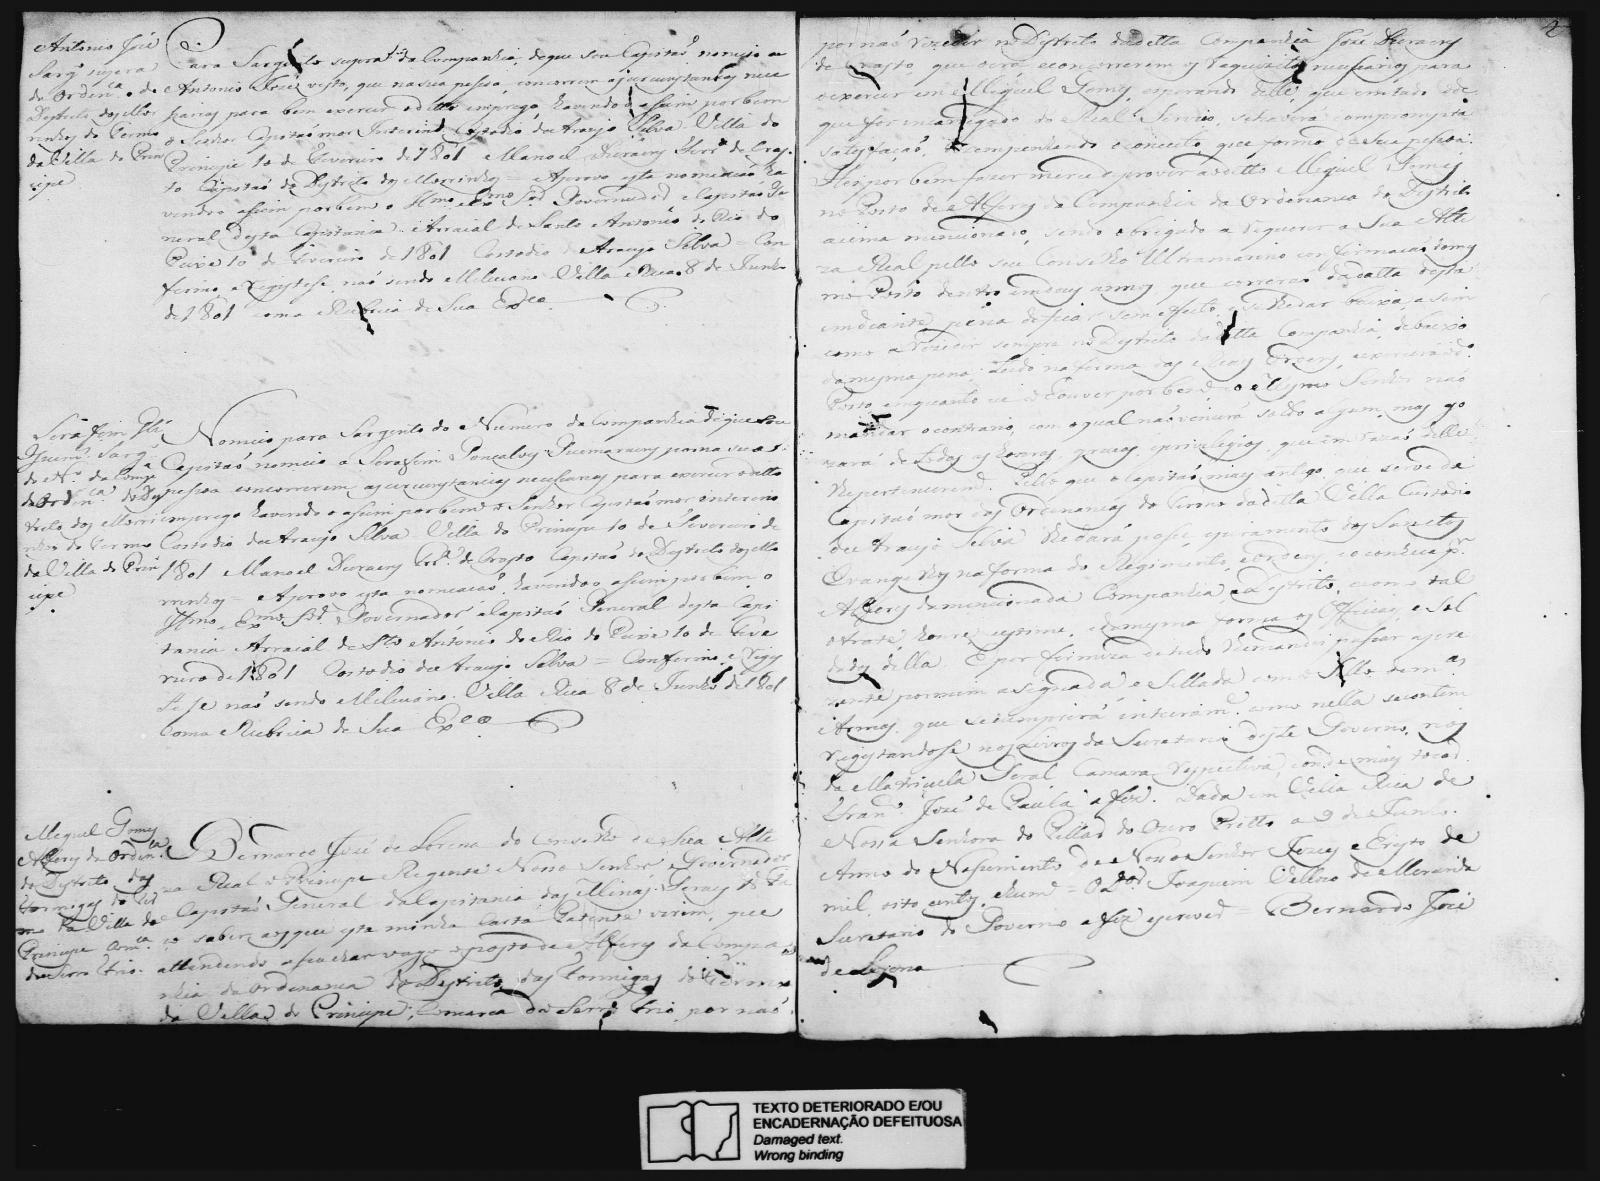 Antonio José
Sarg.to supra
da Ordin.ca do
Destricto dos Mor
rinhos do Termo
da Villa do Prin
cipe
Para Sargento supra da Companhia, de que sou Capitaõ nomeio a
Antonio José visto, que na sua pessoa, concorrem as circunstancias nece
sarias para bem exercer o ditto emprego, havendo o assim por bem
o Senhor Capitaõ mor Interino Custodio de Araujo Silva Villa do
Principe 10 de Fevereiro de 1801 Manoel Duraens de Cras
to Capitaõ do Destricto dos Morrinhos = Aprovo esta nomeaçaõ ha
vendo o assim por bem o Ill.mo e Ex.mo Snr Governador e Capitaõ Ge
neral desta Capitania. Arraial de Santo Antonio do Rio do
Peixe 10 de Fevereiro de 1801 Custodio de Araujo Silva = Con
firmo, e Registese, naõ sendo Meliciano. Villa Rica 8 de Junho
de 1801 coma Rubrica de Sua Ex.cia
Serafim Glz'
Guim.es Sarg.to
do N.o da Comp.a
da Ord.ca do Des
tricto dos Morri
nhos do Termo
da Villa do Prin
cipe
Nomeio para Sargento do Numero da Companhia de que sou
Capitaõ nomeio a Serafim Gonçalves Guimaraens por na sua
pessoa concorrerem as circunstancias necesarias para exercer o ditto
emprego havendo o assim por bem o Senhor Capitaõ mor interino
Custodio de Araujo Silva Villa do Principe 10 de Fevereiro de
1801 Manoel Duraens de Crasto Capitaõ do Destricto dos Mo
rrinhos = Aprovo esta nomeacaõ, havendo o assim por bem o
Ill.mo e Ex.mo Snr Governador e Capitaõ General desta Capi
tania Arraial de S.to Antonio do Rio do Peixe 10 de Feve
reiro de 1801 Custodio de Araujo Silva = Confirmo, e Regis
tese naõ sendo Meliciano. Villa Rica 8 de Junho de 1801
Coma Rubrica de Sua Ex.cia
Miguel Gomes
Alferes da Ordin.ca
do Destricto das
Formigas do Ter
mo da Villa do
Principe Com.ca
do Serro frio.
Bernardo José de Lorena do Conselho de Sua Alte
za Real o Principe Regente Nosso Senhor, Governador
e Capitaõ General da Capitania das Minas Geraes &.a Fa
ço saber, aos que esta minha Carta Patente virem, que
attendendo a se achar vago o posto de Alferes da Compa
nhia da Ordenança do Destricto das Formigas do Termo
da Villa do Principe, Comarca do Serro frio, por naõ
2
por naõ rezedir no Destricto da ditta Companhia José Duraens
de Crasto, que
o exercer em Miguel Gomes, esperando delle, que em tudo o de
que for encarregado do Real Serviço, se haverá com prompta
satisfaçaõ, correspondendo o conceito que formo de sua pessoa.
Hey por bem fazer merce de prover ao ditto Miguel Gomes
no Posto de Alferes da Companhia da Ordenança do Destricto
acima mencionado, sendo obrigado a requerer a Sua Alte
za Real pello seu Conselho Ultramarino confirmaçaõ do mes
mo Posto dentro em dous annos que correraõ da datta desta
em diante, pena de ficar sem efeito, e se lhe dar baixa, a sim
como a rezedir sempre no Destricto da ditta Companhia, debaixo
da mesma pena. Tudo na forma das Reaes Ordens, e exercerá o d.o
Posto, enquanto eu o houver por bem, e o mesmo Senhor naõ
mandar o contrario, com o qual naõ vencerá soldo algum, mas go
zará de todas as honras, graças, e privilegios, que em razaõ delle
lhe pertencerem. Pelo que o Capitaõ mais antigo, que serve de
Capitaõ mor das Ordenanças do Termo da ditta Villa Custodio
de Araujo Silva lhe dará posse e juramento dos Santos
Evangelhos na forma do Regimento, e Ordens, e o conheça p.r
Alferes da mencionada Companhia e Destricto, e como tal
o trate, honre, e estime, e da mesma forma os Officiaes, e Sol
dados della. E por firmeza de tudo lhe mandei passar a pre
zente por mim asignada e Sellada com o Sello de m.as
Armas, que se cumprirá inteiram.te como nella se contem
registandose nos Livros da Secretaria deste Governo, nos
da Matricula Geral, Camara respectiva, e onde mais tocar
Fran.co José de Paula a fez. Dada em Villa Rica de
Nossa Senhora do Pillar do Ouro Pretto a 9 de Junho.
Anno do Nascimento de Nosso Senhor Jezus Christo de
mil, oito centos, e hum = O D.or Joaquim Velloso de Miranda
Secretario do Governo a fez escrever = Bernardo José
de Lorena
TEXTO DETERIORADO E/OU
ENCADERNAÇÃO DEFEITUOSA
Damaged text.
Wrong binding